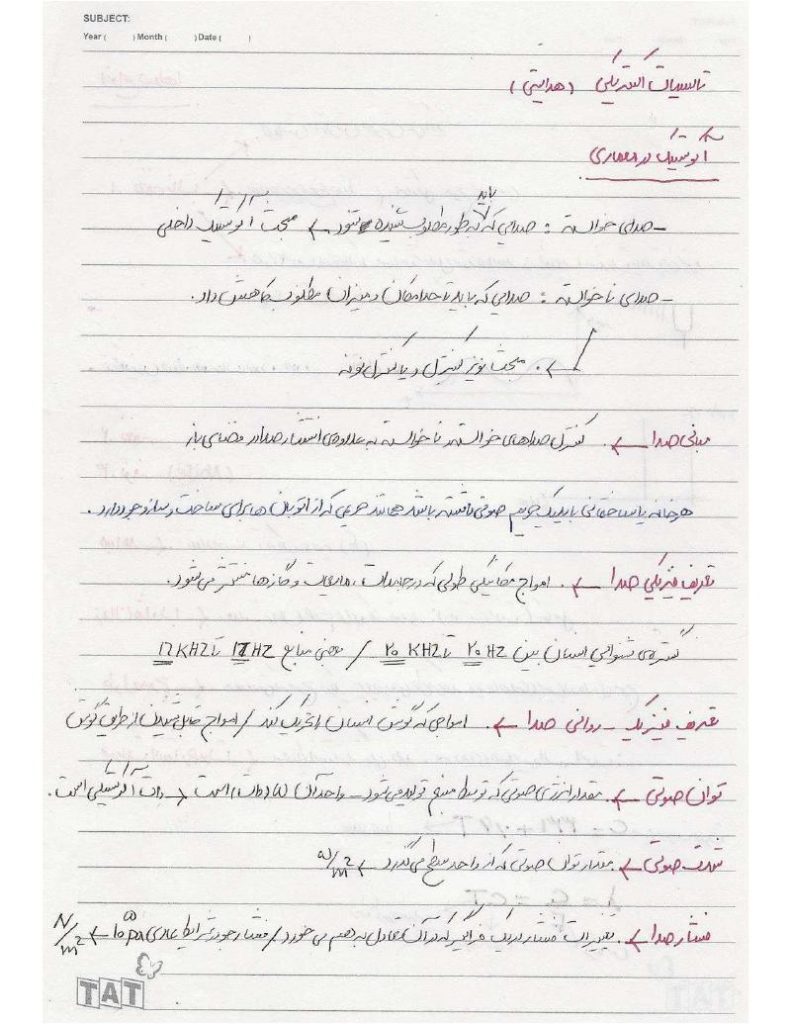 SUBJECT:
Year ( ) Month ( ) Date ( )
تاسیسات الکتریکی (هدایتی)
آکوستیک در معماری
- صدای خواسته : صدایی که باید به طور مطلوب شنیده شود ← مبحث آکوستیک داخلی
- صدای ناخواسته : صدایی که باید تا حد امکان و میزان مطلوب کاهش داد.
← مبحث نویز کنترل و یا کنترل نوفه
مبانی صدا ← کنترل صداهای خواسته و ناخواسته به علاوه‌ی انتشار صدا در فضای باز
هر خانه یا ساختمانی باید یک حریم صوتی داشته باشد همانند حریمی که از اتوبان ها برای ساخت و ساز وجود دارد.
تعریف فیزیکی صدا ← امواج مکانیکی طولی که در جامدات، مایعات و گازها منتشر می شود.
گستره‌ی شنوایی انسان بین ۲۰ HZ تا ۲۰ KHZ / بعضی منابع 17 HZ تا 17 KHZ
تعریف فیزیک - روانی صدا ← امواجی که گوش انسان را تحریک کند / امواج قابل شنیدن از طریق گوش
توان صوتی ← مقدار انرژی صوتی که توسط منبع تولید می شود - واحد آن W (وات) است ← وات آکوستیکی است.
شدت صوتی ← مقدار توان صوتی که از واحد سطح می گذرد ← W/m²
فشار صدا ← تغییرات فشار که در آن تعادل به هم می خورد / فشار جو در شرایط عادی 10⁵ pa ← N/m²
TAT